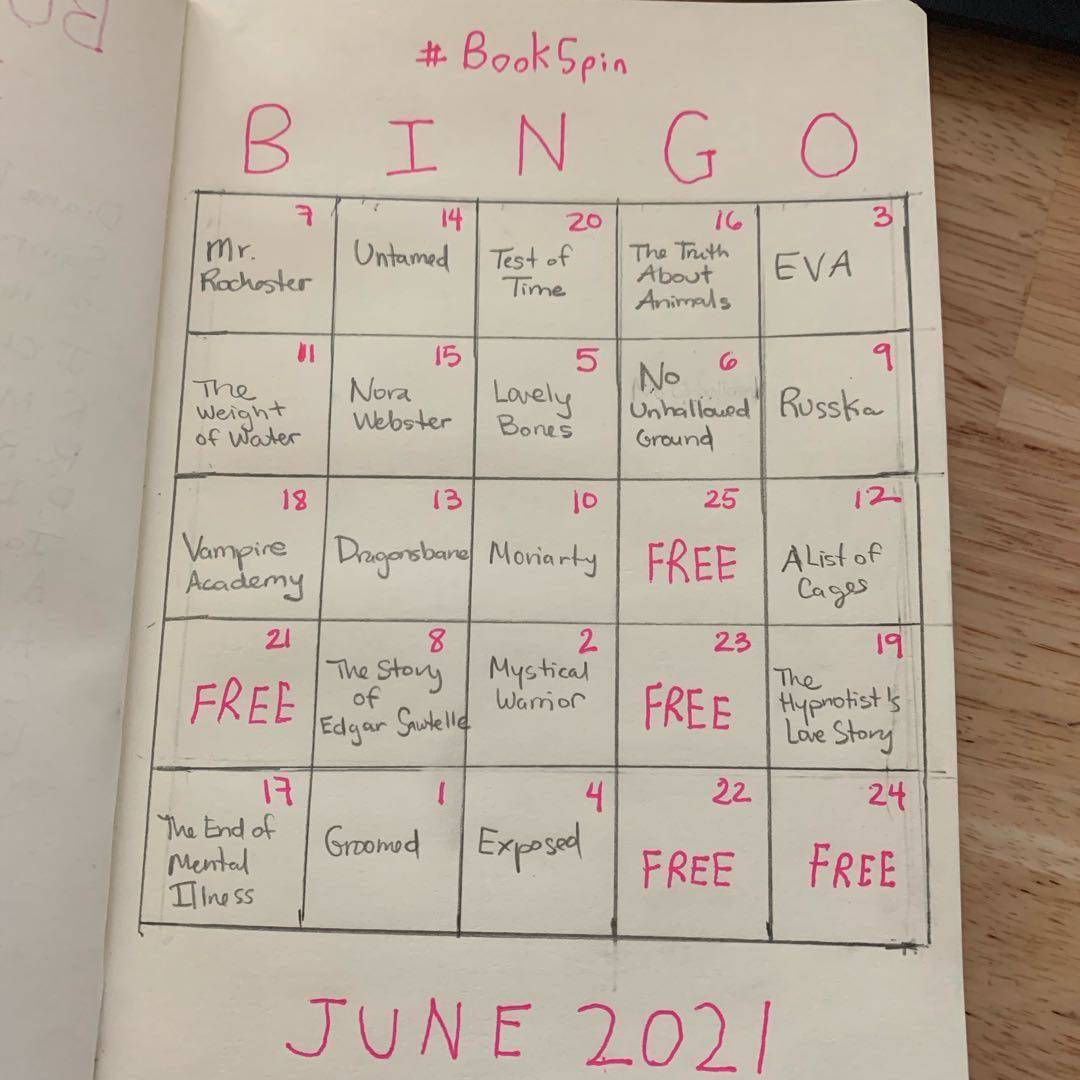 #BookSpin
B I N G O
7 14 20 16 3
Mr.
Rochester
Untamed
Test of
Time
The Truth
About
Animals
EVA
11 15 5 6 9
The
Weight
of Water
Nora
Webster
Lovely
Bones
No
Unhallowed
Ground
Russka
18 13 10 25 12
Vampire
Academy
Dragonsbane
Moriarty
FREE
A List of
Cages
21 8 2 23 19
FREE
The Story
of
Edgar Sawtelle
Mystical
Warrior
FREE
The
Hypnotist's
Love Story
17 1 4 22 24
The End of
Mental
Illness
Groomed
Exposed
FREE
FREE
JUNE 2021